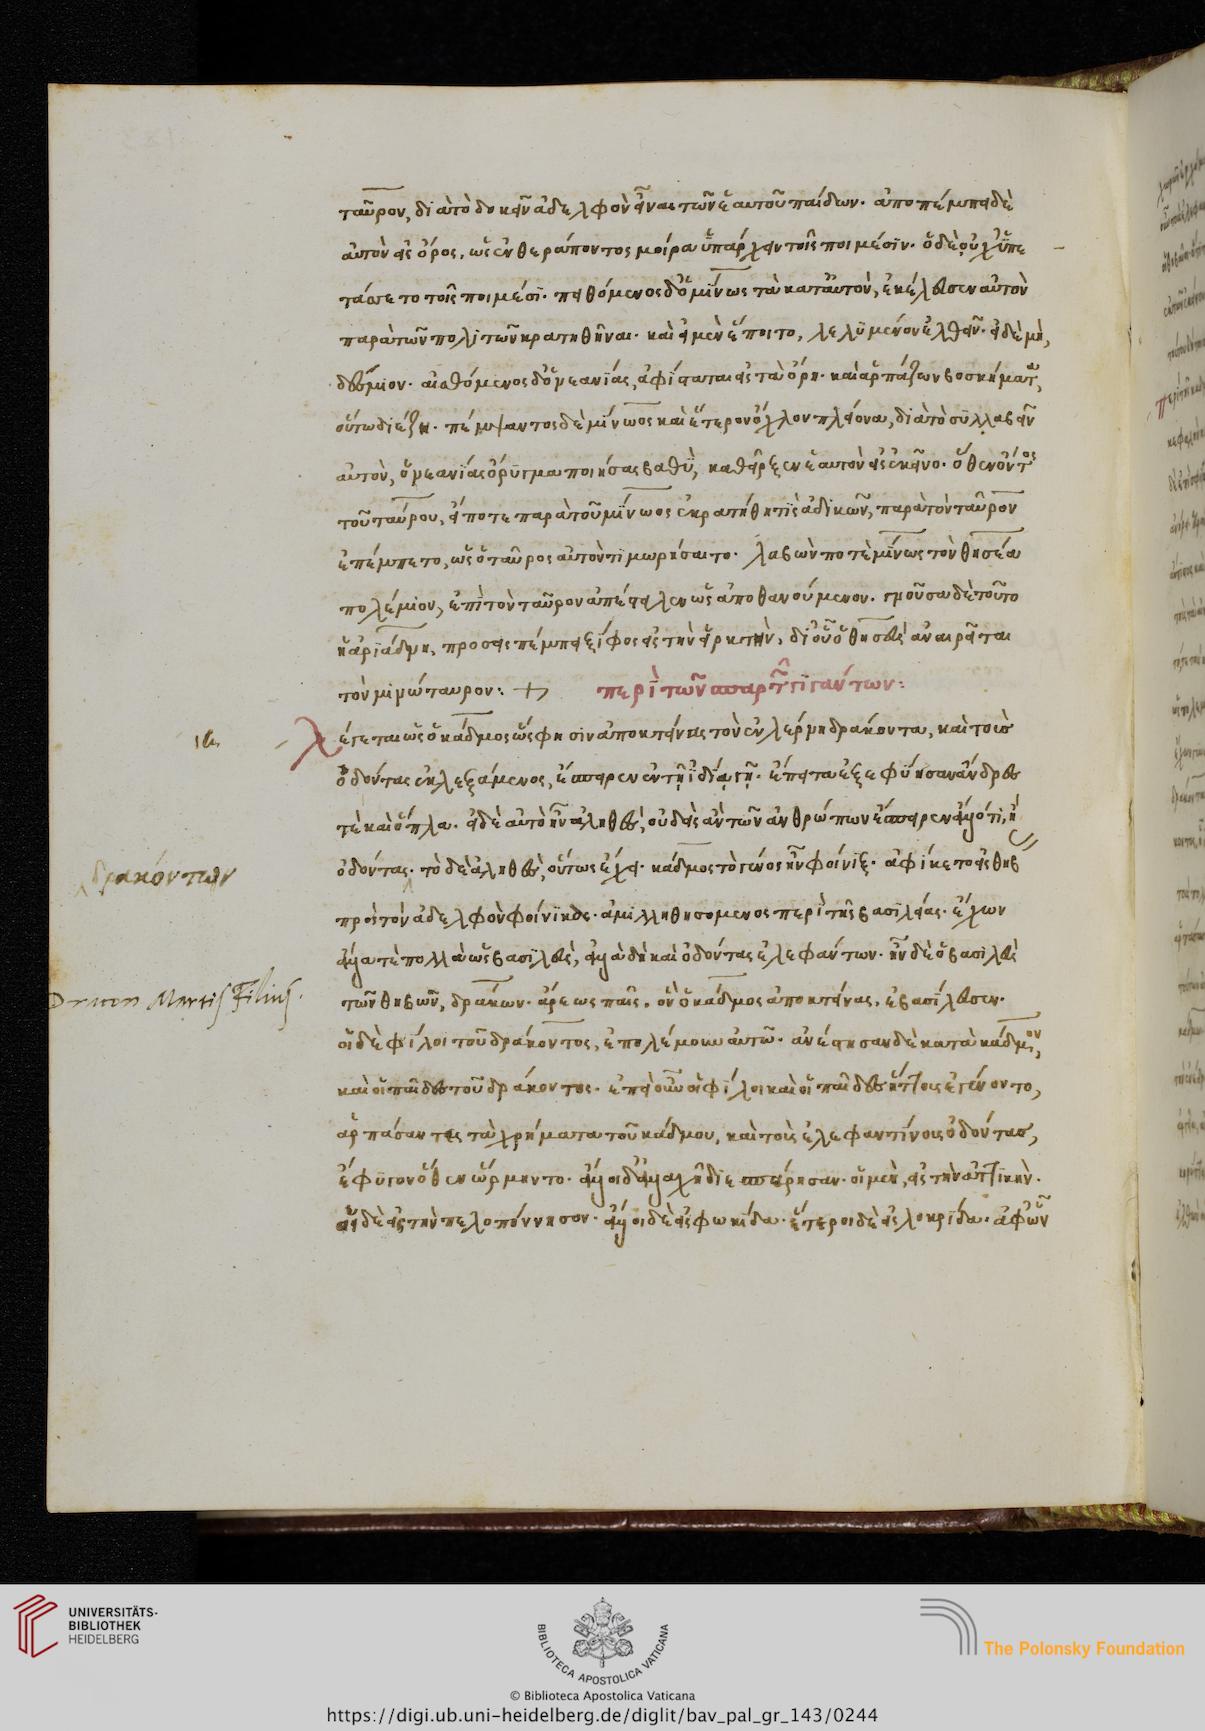 ταῦρον, διὰ τὸ δοκεῖν ἀδελφὸν εἶναι τῶν ἑαυτοῦ παίδων. ἀποπέμπει δὲ
αὐτὸν εἰς ὄρος, ὡς ἐν θεράποντος μοίρα ὑπάρχειν τοῖς ποιμέσιν. ὁ δὲ οὐχ ὑπε
τάσσετο τοῖς ποιμέσι. πυθόμενος δ' ὁ μίνως τὰ κατ' αὐτὸν, ἐκέλευσεν αὐτὸν
παρὰ τῶν πολιτῶν κρατηθῆναι. καὶ εἰ μὲν ἕποιτο, λελυμένον ἐλθεῖν. εἰ δὲ μὴ,
δέσμιον. αἰσθόμενος δ' ὁ νεανίας, ἀφίσταται εἰς τὰ ὄρη. καὶ ἁρπάζων βοσκήματ,
οὕτω διέζη. πέμψαντος δὲ μίνωος καὶ ἕτερον ὄχλον πλείονα, διὰ τὸ συλλαβεῖν
αὐτὸν, ὁ νεανίας ὄρυγμα ποιήσας βαθὺ, καθεῖρξεν ἑαυτὸν εἰς ἐκεῖνο. ὅθεν ὄντος
τοῦ ταύρου, εἴποτε παρὰ τοῦ μίνωος ἐκρατήθη τὶς ἀδικῶν, παρὰ τὸν ταῦρον
ἐπέμπετο, ὡς ὁ ταῦρος αὐτὸν τιμωρήσαιτο. λαβὼν ποτὲ μίνως τὸν θησέα
πολέμιον, ἐπὶ τὸν ταῦρον ἀπέστειλεν ὡς ἀποθανούμενον. γνοῦσα δὲ τοῦτο
ἡ ἀριάδνη, προσεισπέμπει ξίφος εἰς τὴν εἱρκτὴν, δι' οὗ ὁ θησεὺς ἀναιρεῖται
τὸν μινώταυρον:
περὶ τῶν σπαρτῶν γιγάντων:
λέγεται ὡς ὁ κάδμος ὥς φησιν ἀποκτείνας τὸν ἐν λέρνη δράκοντα, καὶ τοὺς
ὀδόντας ἐκλεξάμενος, ἔσπειρεν ἐν τῆ ἰδία γῆ. ἔπειτα ἐξεφύησαν ἄνδρες
τὲ καὶ ὅπλα. εἰ δὲ αὐτὸ ἦν ἀληθὲς, οὐδεὶς ἂν τῶν ἀνθρώπων ἔσπειρεν ἄλλό τι, ἢ
ὀδόντας. τὸ δὲ ἀληθὲς, οὕτως ἔχει. κάδμος τὸ γένος ἦν φοίνιξ. ἀφίκετο εἰς θήβ
πρὸς τὸν ἀδελφὸν φοίνικος. ἁμιλληθησόμενος περὶ τῆς βασιλείας. ἔχων
ἄλλα τὲ πολλὰ ὡς βασιλεὺς, ἀλλὰ δὴ καὶ ὀδόντας ἐλεφάντων. ἦν δὲ ὁ βασιλεὺς
τῶν θηβῶν, δράκων. ἄρεως παῖς. ὃν ὁ κάδμος ἀποκτείνας, ἐβασίλευσεν.
οἱ δὲ φίλοι τοῦ δράκοντος, ἐπολέμουν αὐτῶ. ἀνέστησαν δὲ κατὰ κάδμον,
καὶ οἱ παῖδες τοῦ δράκοντος. ἐπεὶ οὖν οἱ φίλοι καὶ οἱ παῖδες ἥττους ἐγένοντο,
ἁρπάσαντες τὰ χρήματα τοῦ κάδμου, καὶ τοὺς ἐλεφαντίνους ὀδόντας,
ἔφυγον ὅθεν ὥρμηντο. ἄλλοι δ' ἀλλαχῆ διεσπάρησαν. οἱ μὲν, εἰς τὴν ἀττικὴν.
οἱ δὲ εἰς τὴν πελοπόννησον. ἄλλοι δὲ εἰς φωκίδα. ἕτεροι δὲ εἰς λοκρίδα. ἀφ' ὧν
δρακόντων
Dracon Martis Filius.
UNIVERSITÄTS-
BIBLIOTHEK
HEIDELBERG
BIBLIOTECA APOSTOLICA VATICANA
The Polonsky Foundation
© Biblioteca Apostolica Vaticana
https://digi.ub.uni-heidelberg.de/diglit/bav_pal_gr_143/0244